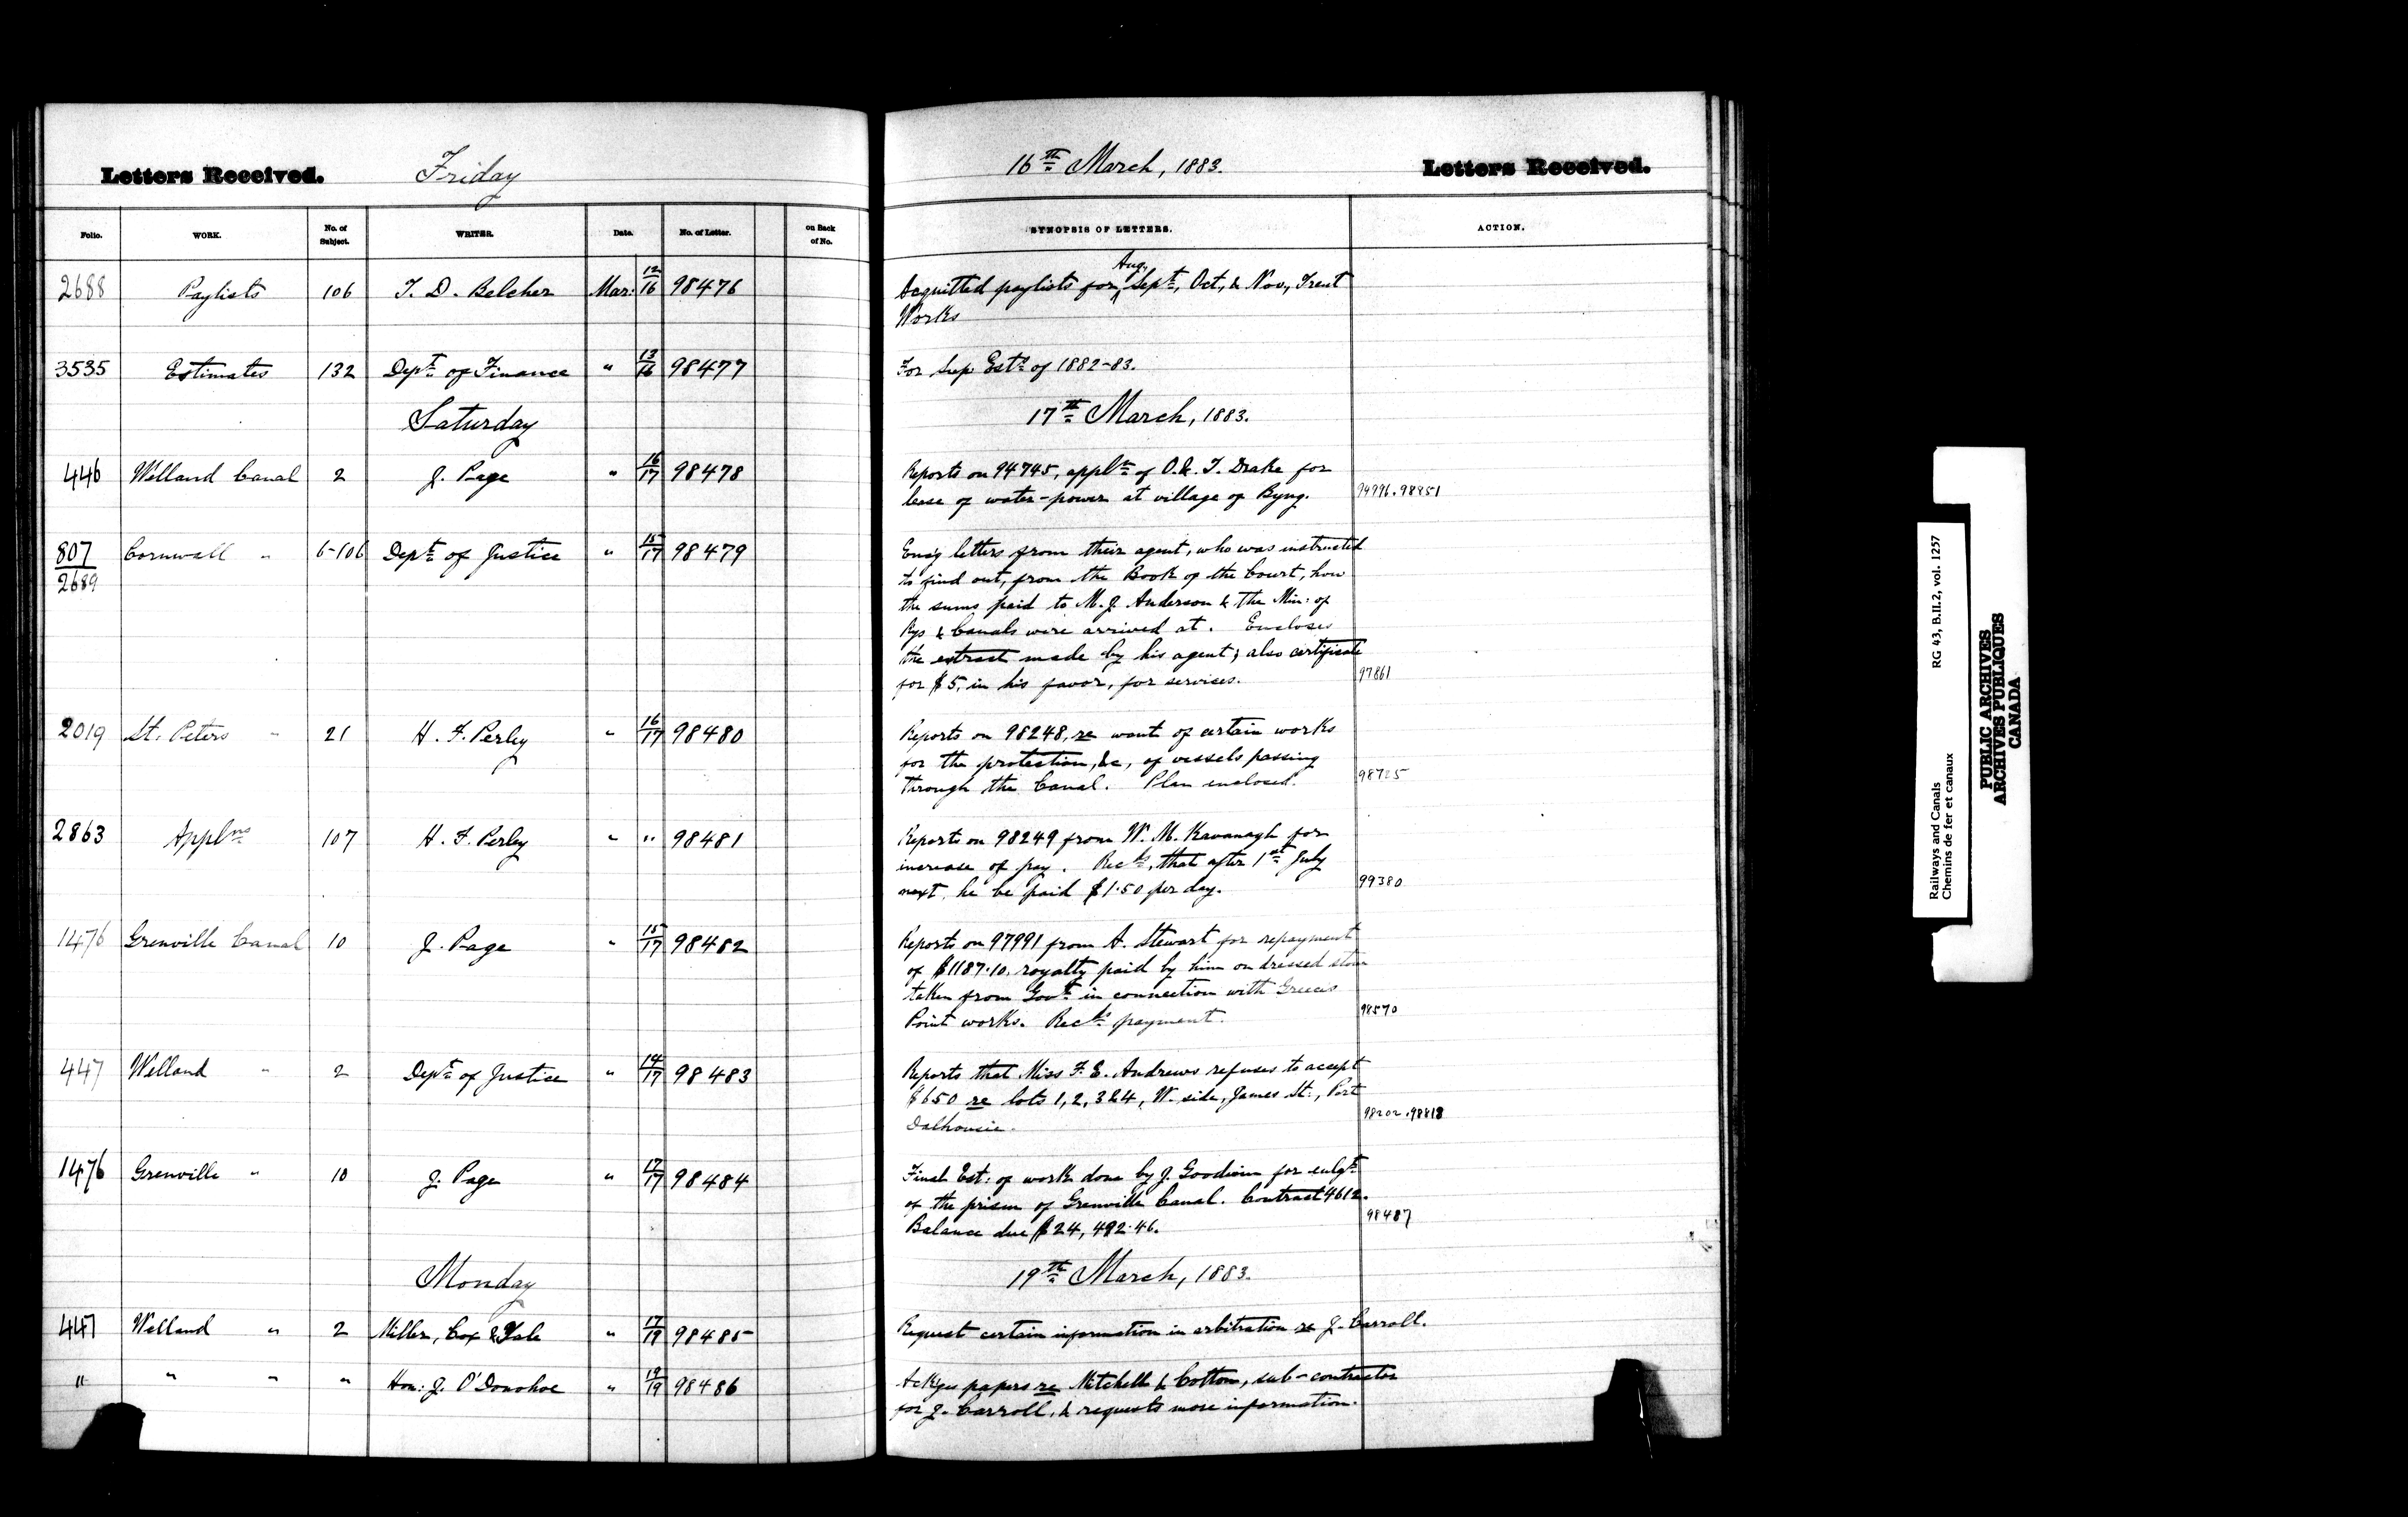 Letters Received. Friday 16th March, 1883. Letters Received.
Folio. WORK. No. of Subject. WRITER. Date. No. of Letter. on Back of No. SYNOPSIS OF LETTERS. ACTION.
2688 Paylists 106 T. D. Belcher Mar: 12/16 98476 Acquitted paylists for Aug. Sept, Oct, & Nov, Trent
Works
3535 Estimates 132 Dept of Finance " 13/16 98477 For Sup Ests of 1882-83.
Saturday 17th March, 1883.
446 Welland Canal 2 J. Page " 16/17 98478 Reports on 94745, appln of O. & T. Drake for
lease of water-power at village of Byng. 94996.98851
807/2689 Cornwall " 6-106 Dept of Justice " 15/17 98479 Encg letters from their agent, who was instructed
to find out, from the Book of the Court, how
the sums paid to M. J. Anderson & the Min: of
Rys & Canals were arrived at. Encloses
the extract made by his agent; also certificate
for $5, in his favor, for services. 97861
2019 St. Peters " 21 H. F. Perley " 16/17 98480 Reports on 98248, re want of certain works
for the protection, &c, of vessels passing
through the Canal. Plan enclosed. 98725
2863 Applns 107 H. F. Perley " " 98481 Reports on 98249 from W. M. Kavanagh for
increase of pay. Recds, that after 1st July
next, he be paid $1.50 per day. 99380
1476 Grenville Canal 10 J. Page " 15/17 98482 Reports on 97991 from A. Stewart for repayment
of $1187.10, royalty paid by him on dressed stone
taken from Govt in connection with Greece's
Point works. Recds payment. 98570
447 Welland " 2 Dept of Justice " 14/17 98483 Reports that Miss F. E. Andrews refuses to accept
$650 re lots 1, 2, 3 & 4, W. side, James St:, Port
Dalhousie. 98202.98818
1476 Grenville " 10 J. Page " 17/17 98484 Final Est: of work done by J. Goodwin for enlgt
of the prism of Grenville Canal. Contract 4612.
Balance due $24,492.46. 98487
Monday 19th March, 1883.
447 Welland " 2 Miller, Cox & Yale " 17/19 98485 Request certain information in arbitration re J. Carroll.
" " " " Hon: J. O'Donohoe " 19/19 98486 Ackges papers re Mitchell & Cotton, sub-contractor
for J. Carroll, & requests more information.
Railways and Canals RG 43, B.II.2, vol. 1257
Chemins de fer et canaux
PUBLIC ARCHIVES
ARCHIVES PUBLIQUES
CANADA